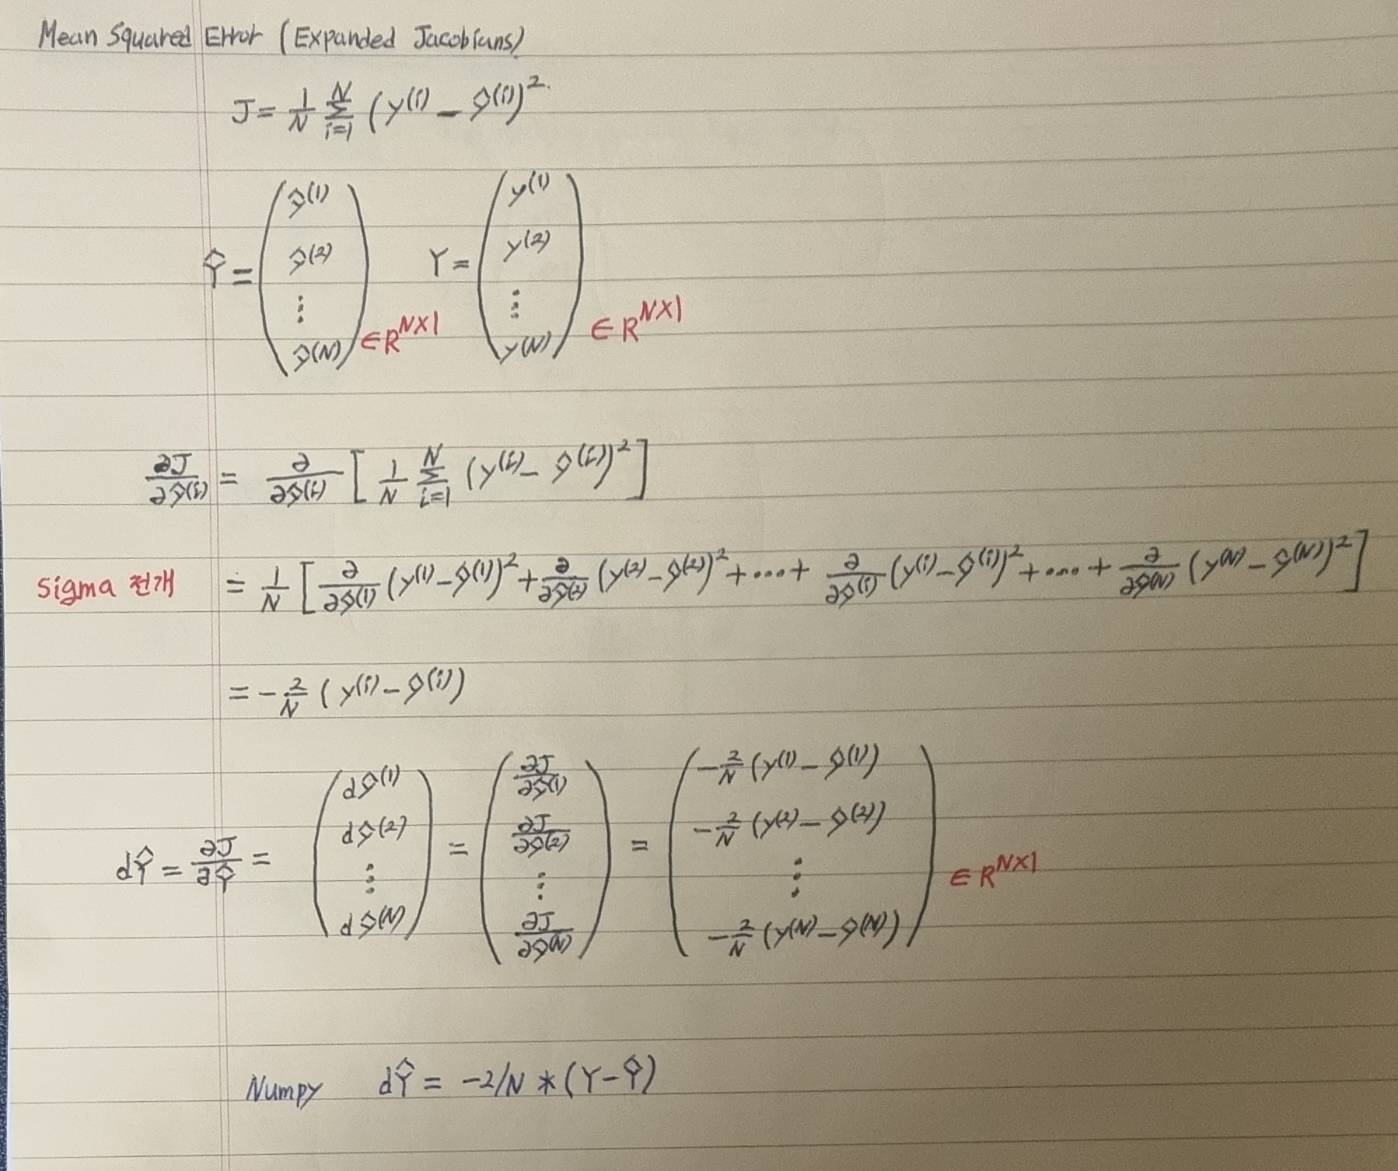 Mean Squared Error (Expanded Jacobians)
J = 1/N Σ_{i=1}^{N} (y^(i) - ŷ^(i))^2.
Ŷ = ( ŷ^(1) ŷ^(2) ⋮ ŷ^(N) ) ∈ R^{N×1} Y = ( y^(1) y^(2) ⋮ y^(N) ) ∈ R^{N×1}
∂J/∂ŷ^(i) = ∂/∂ŷ^(i) [ 1/N Σ_{i=1}^{N} (y^(i) - ŷ^(i))^2 ]
Sigma 전개 = 1/N [ ∂/∂ŷ^(1) (y^(1) - ŷ^(1))^2 + ∂/∂ŷ^(2) (y^(2) - ŷ^(2))^2 + ⋯ + ∂/∂ŷ^(i) (y^(i) - ŷ^(i))^2 + ⋯ + ∂/∂ŷ^(N) (y^(N) - ŷ^(N))^2 ]
= - 2/N (y^(i) - ŷ^(i))
dŶ = ∂J/∂Ŷ = ( dŷ^(1) dŷ^(2) ⋮ dŷ^(N) ) = ( ∂J/∂ŷ^(1) ∂J/∂ŷ^(2) ⋮ ∂J/∂ŷ^(N) ) = ( -2/N (y^(1) - ŷ^(1)) -2/N (y^(2) - ŷ^(2)) ⋮ -2/N (y^(N) - ŷ^(N)) ) ∈ R^{N×1}
Numpy dŶ = -2/N * (Y - Ŷ)